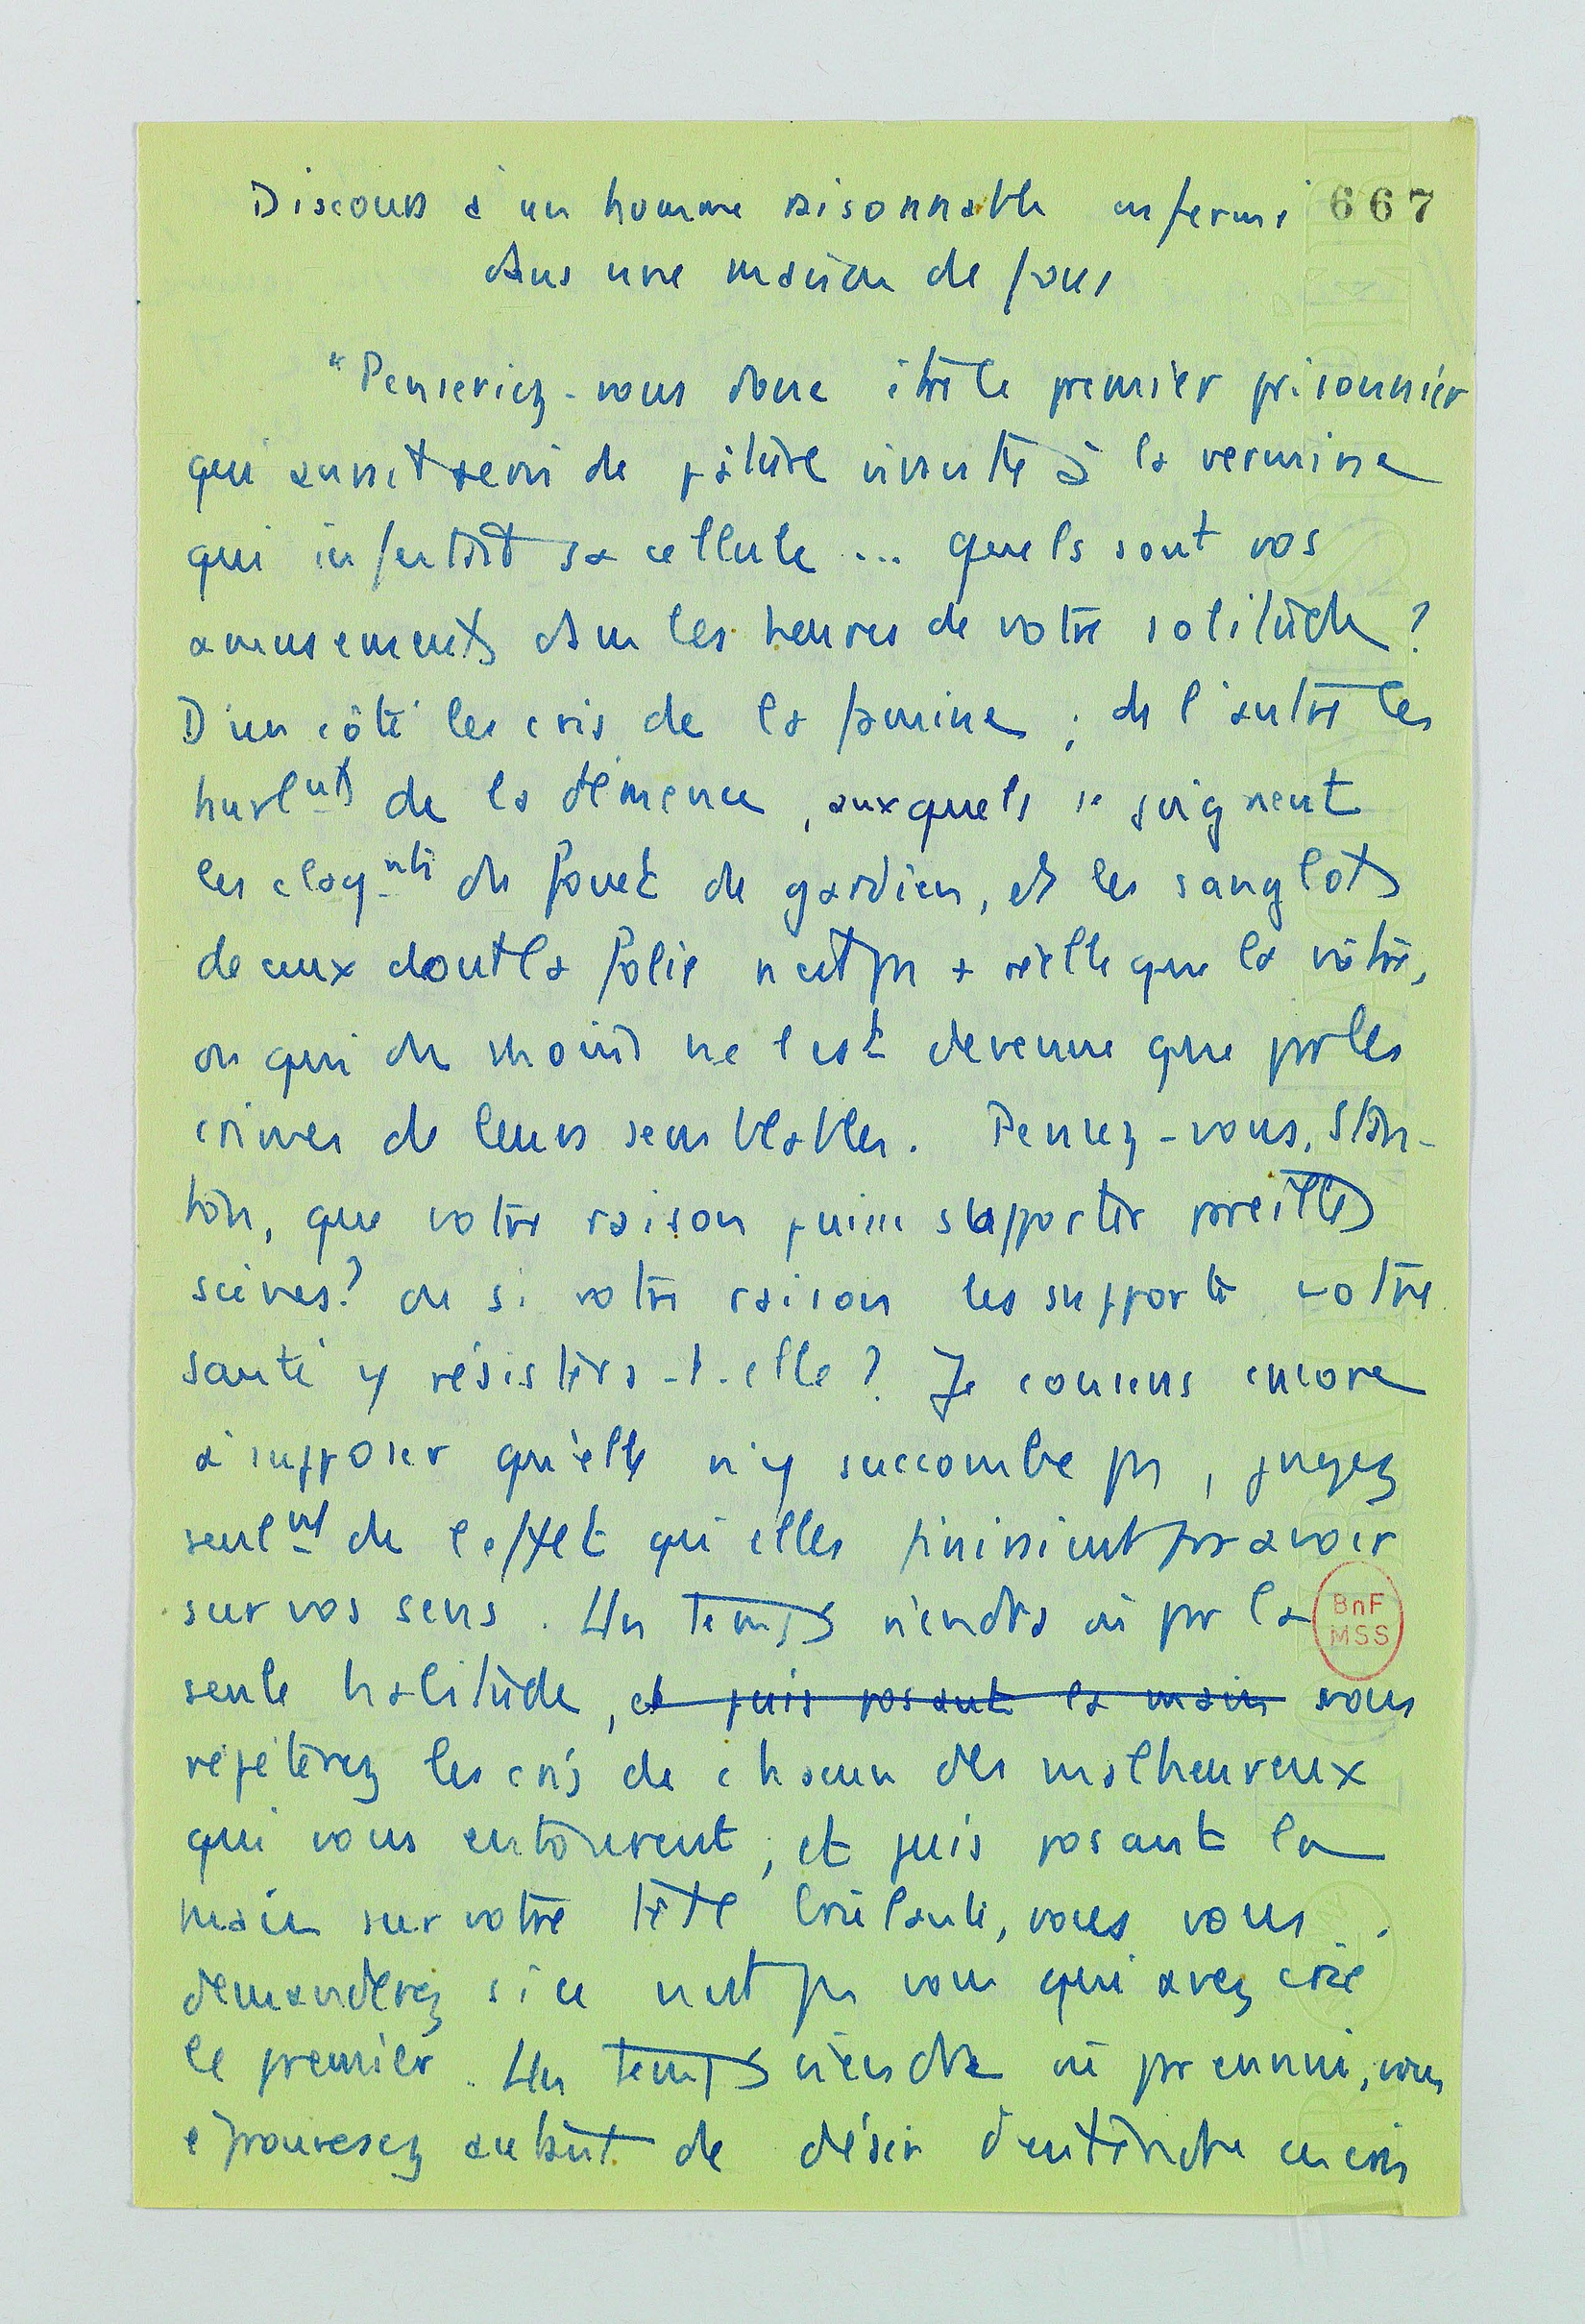 Discours à un homme raisonnable enfermé 667
dans une maison de fous
"Penseriez-vous donc être le premier prisonnier
qui aurait servi de pâture vivante à la vermine
qui infestait sa cellule ... quels sont vos
amusements dans les heures de votre solitude ?
D'un côté les cris de la famine ; de l'autre les
hurlnts de la démence, auxquels se joignent
les claqnts du fouet de gardien, et les sanglots
de ceux dont la folie n'est pas + réelle que la vôtre,
ou qui du moins ne l'est devenue que par les
crimes de leurs semblables. Pensez-vous, Stan-
ton, que votre raison puisse supporter pareilles
scènes ? ou si votre raison les supporte votre
santé y résistera-t-elle ? Je conviens encore
à supposer qu'elle n'y succombe pas, jugez
seulnt de l'effet qu'elles finissent par avoir
sur vos sens. Un temps viendra où par la
BnF
MSS
seule habitude, et puis posant la main vous
répéterez les cris de chacun des malheureux
qui vous entourent, et puis posant la
main sur votre tête brûlante, vous vous
demanderez si ce n'est pas vous qui avez crié
le premier. Un temps viendra où par ennui, vous
éprouverez autant de désir d'entendre ces cris